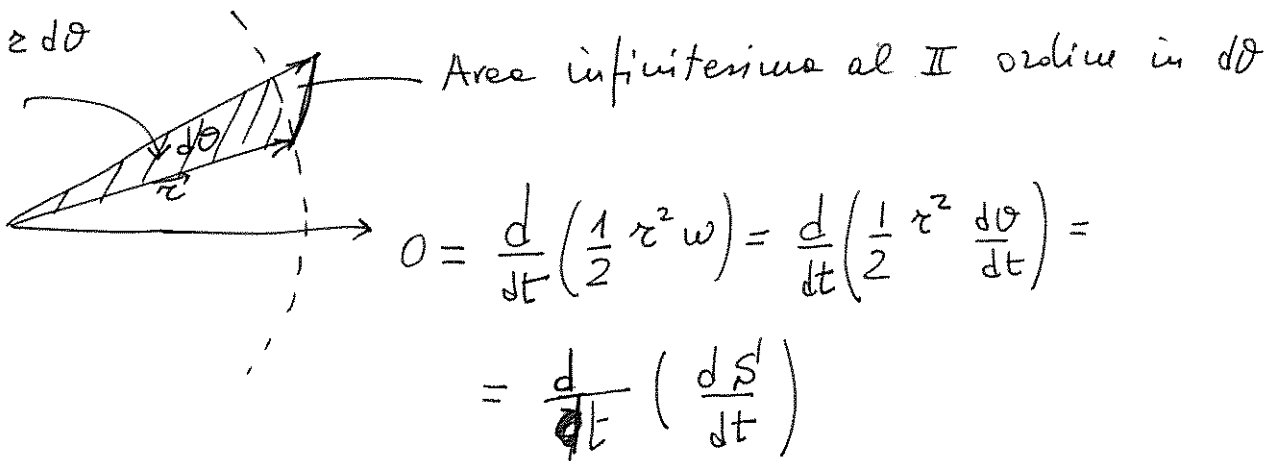 r dθ
Area infinitesima al II ordine in dθ
dθ
r⃗
0 = d/dt (1/2 r² ω) = d/dt (1/2 r² dθ/dt) =
= d/dt (dS/dt)